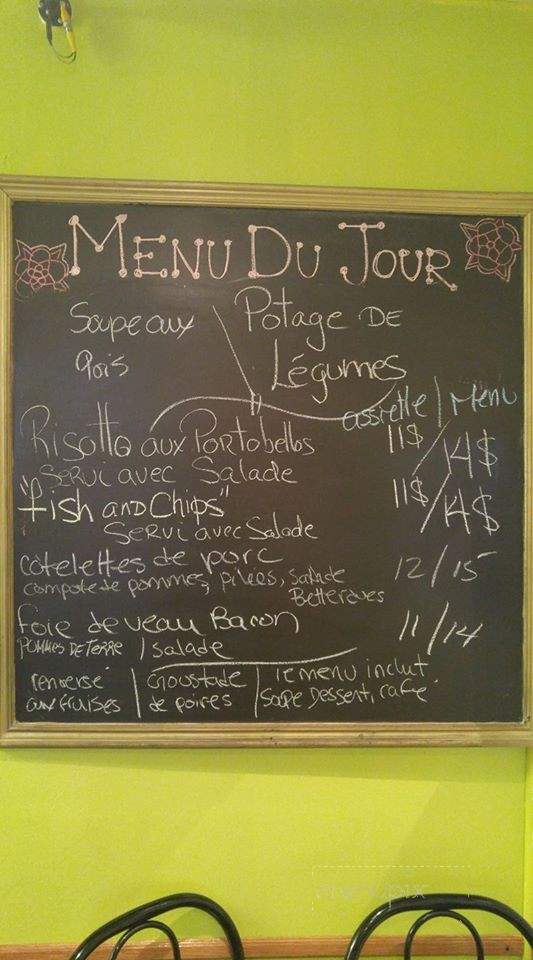 MENU DU JOUR
Soupe aux
pois
Potage DE
Légumes
assiette | Menu
Risotto aux Portobellos 11$ / 14$
Servi avec Salade
"Fish and Chips" 11$ / 14$
Servi avec Salade
côtelettes de porc 12/15
compote de pommes, pilées, salade
Betteraves
foie de veau Bacon 11/14
POMMES DE TERRE / salade
renversé
aux fraises
croustade
de poires
le menu inclut
soupe Dessert, café